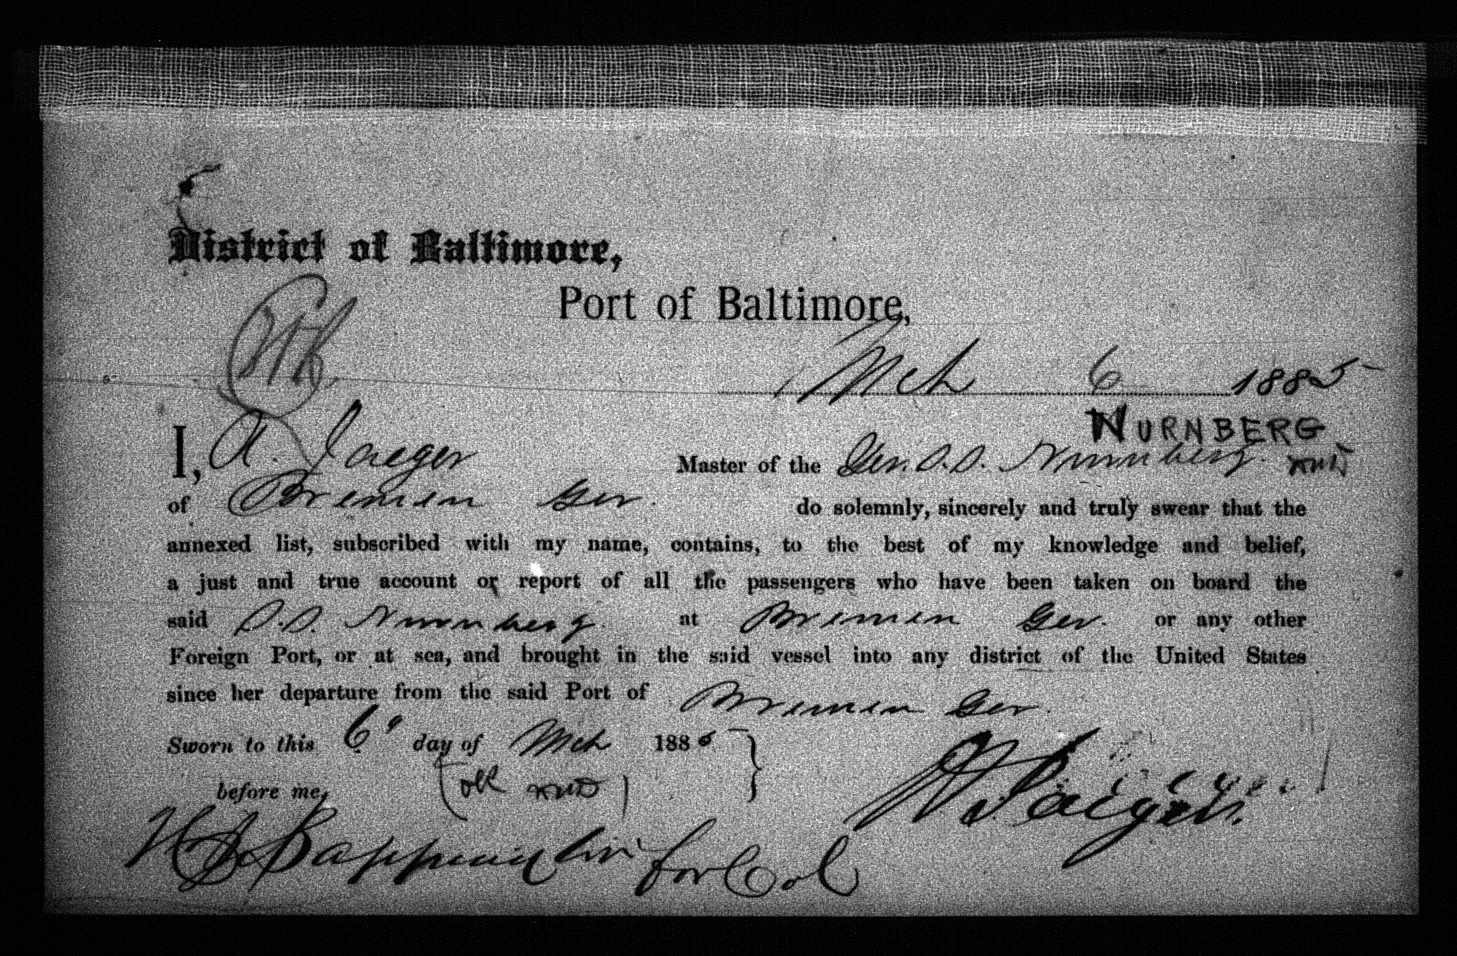 District of Baltimore,
Port of Baltimore,
Mch 6 1885
NURNBERG
I, A. Jaeger Master of the Ger. S.S. Nurnberg.
of Bremen Ger. do solemnly, sincerely and truly swear that the
annexed list, subscribed with my name, contains, to the best of my knowledge and belief,
a just and true account or report of all the passengers who have been taken on board the
said S.S. Nurnberg. at Bremen Ger. or any other
Foreign Port, or at sea, and brought in the said vessel into any district of the United States
since her departure from the said Port of Bremen Ger.
Sworn to this 6" day of Mch 1885
before me, (OK)
for Col